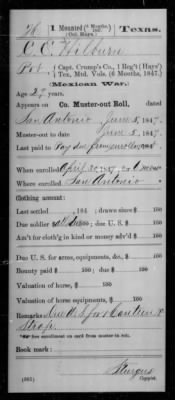 W | 1 Mounted (6 Months, 1847.) (Col. Hays.) | Texas.
C. C. Wilburn
Pvt, Capt. Crump's Co., 1 Reg't (Hays') Tex. Mtd. Vols. (6 Months, 1847.)
(Mexican War.)
Age years.
Appears on
Co. Muster-out Roll, dated
San Antonio June 5, 1847.
Muster-out to date June 5, 1847.
Last paid to Pay due from enrollment 184 .
When enrolled April 20 1847, 6 mos
Where enrolled San Antonio
Clothing account:
Last settled , 184 ; drawn since $ 100
Due soldier $ 100; due U. S. $ 100
Am't for cloth'g in kind or money adv'd $ 100
Due U. S. for arms, equipments, &c., $ 100
Bounty paid $ 100; due $ 100
Valuation of horse, $ 100
Valuation of horse equipments, $ 100
Remarks: Due U. S. for Canteen &
Strap
see enrollment on card from muster-in roll.
Book mark:
(361) Sturgus
Copyist.